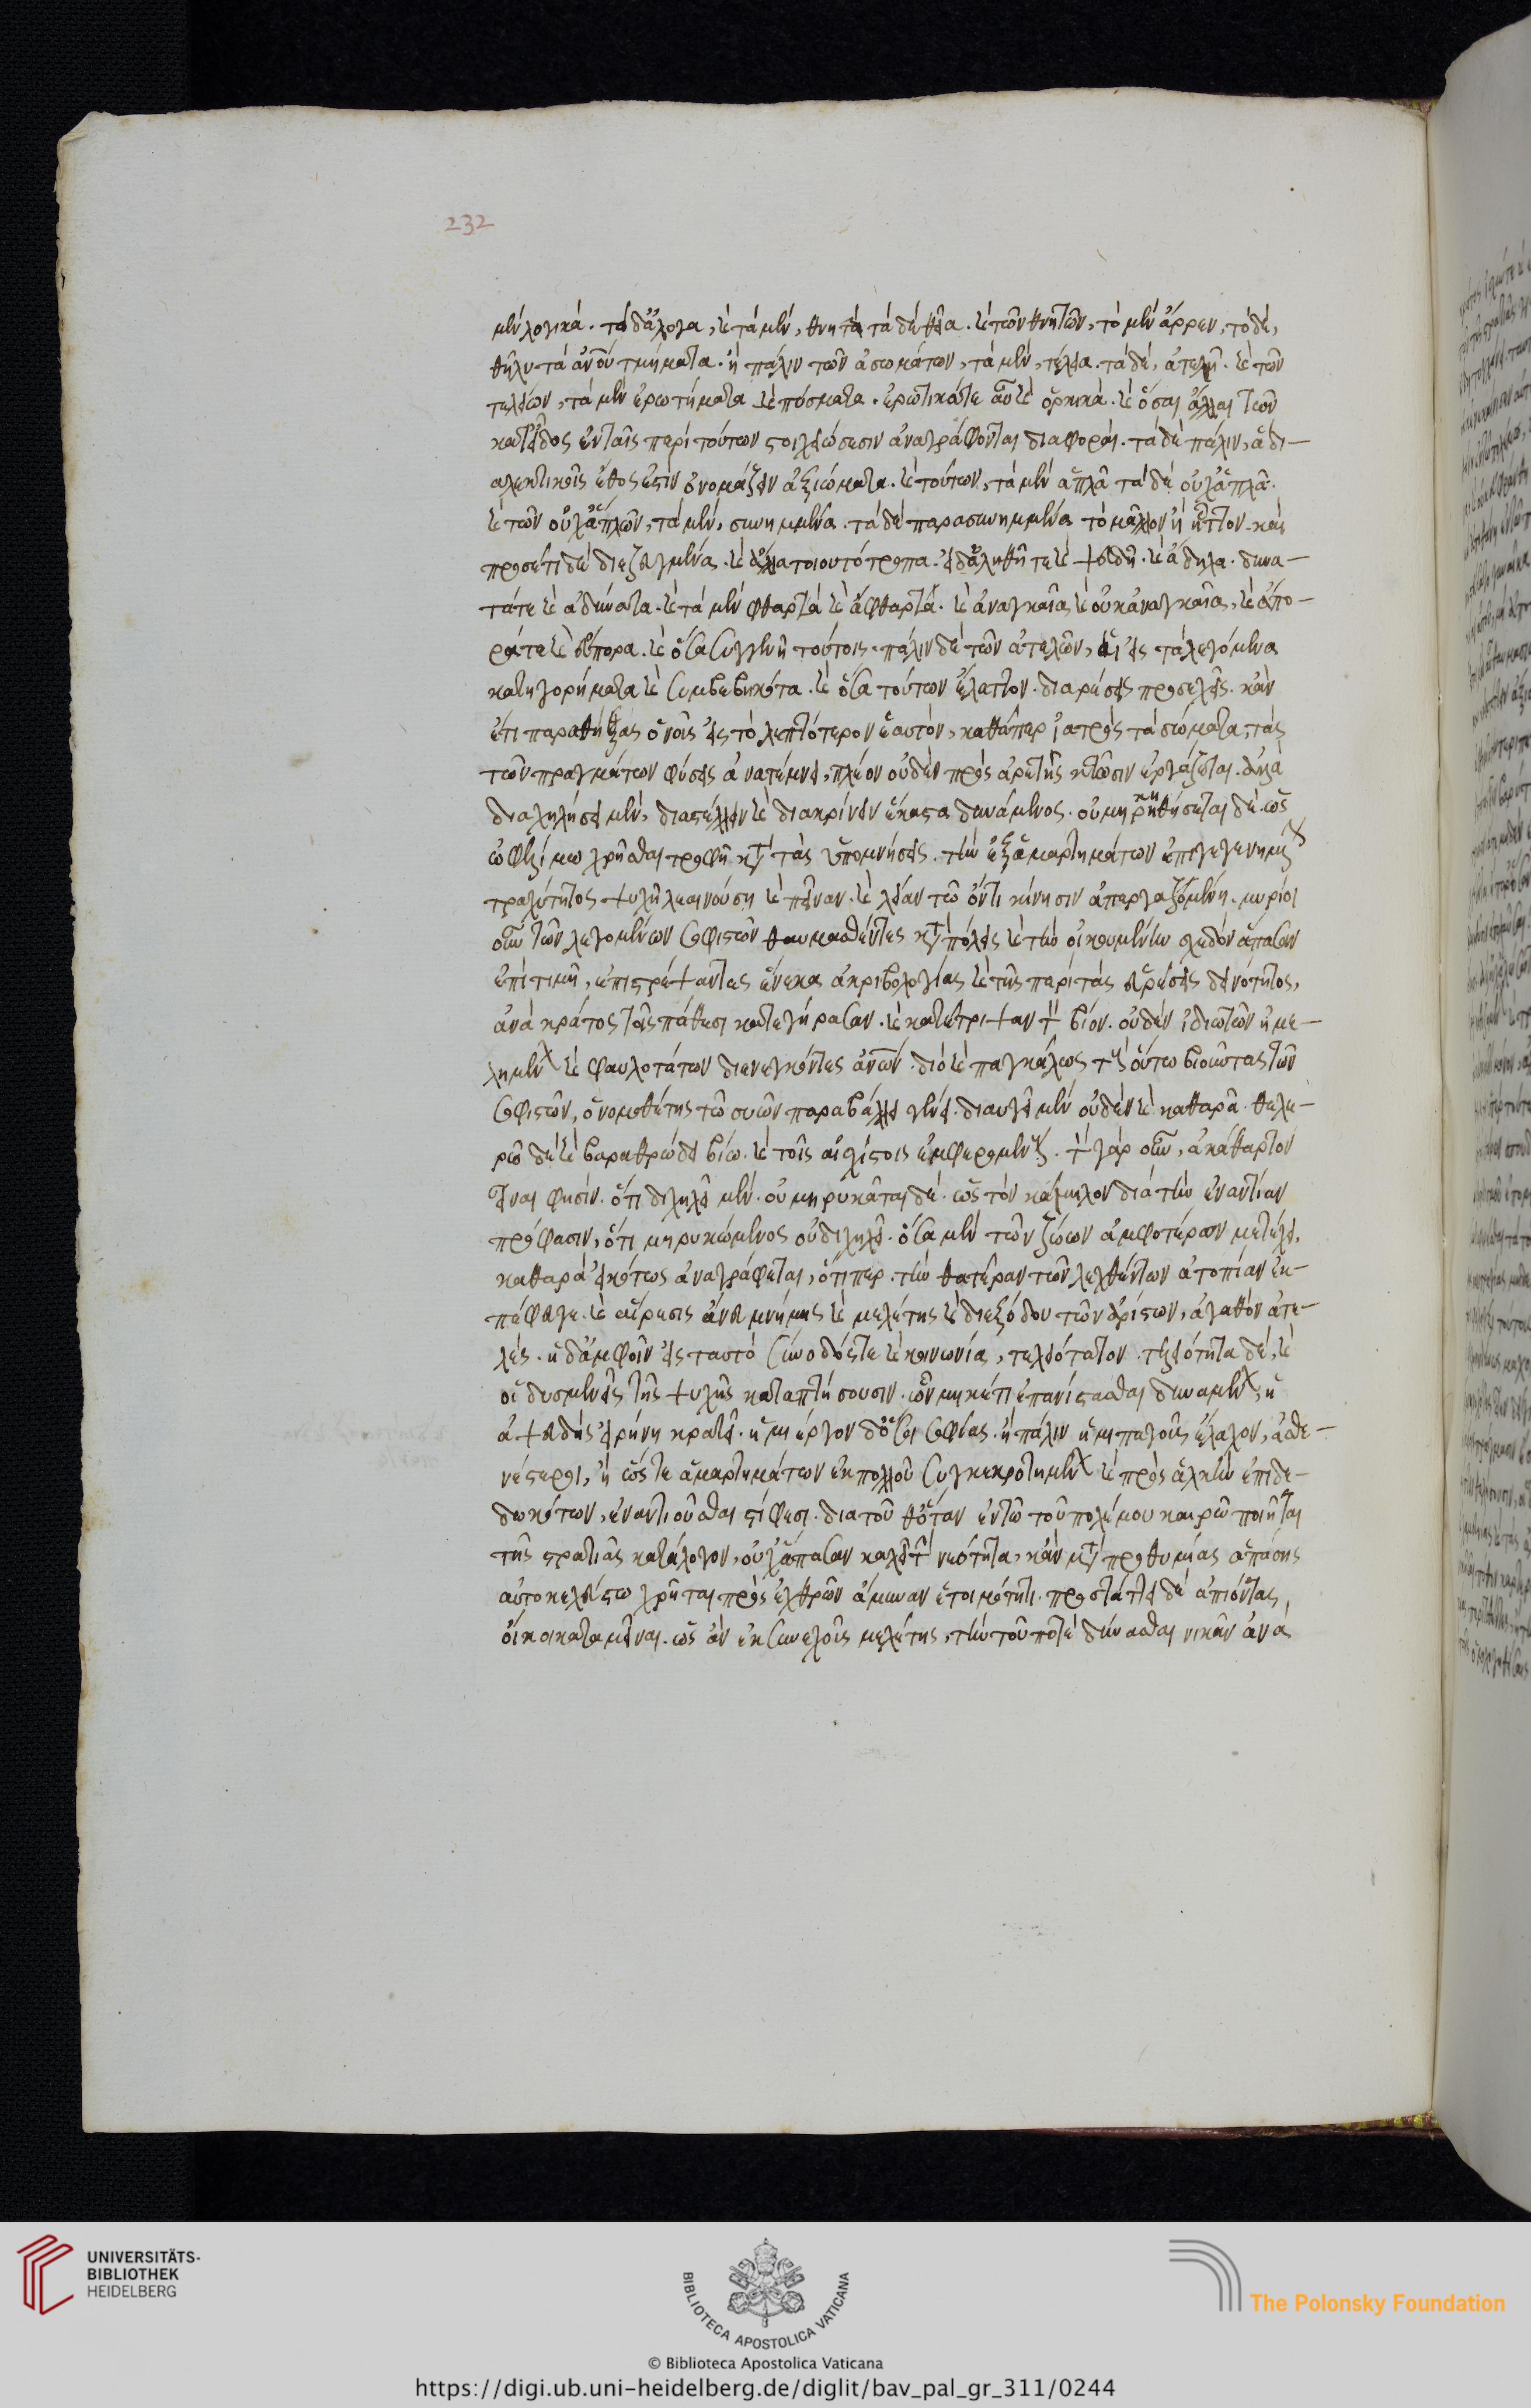 232
μὲν λογικά. τὰ δ᾽ ἄλογα, καὶ τὰ μὲν, θνητὰ τὰ δὲ θεῖα. καὶ τῶν θνητῶν, τὸ μὲν ἄρρεν, τὸ δὲ,
θῆλυ τὰ ἀνθρώπου τμήματα. ἢ πάλιν τῶν ἀσωμάτων, τὰ μὲν, τέλεια. τὰ δὲ, ἀτελῆ. καὶ τῶν
τελείων, τὰ μὲν ἐρωτήματα καὶ πύσματα. ἐρωτικά τε αὖ καὶ ὁρκικά. καὶ ὅσαι ἄλλαι τῶν
κατ᾽ εἶδος ἐν ταῖς περὶ τούτων στοιχειώσεσιν ἀναγράφονται διαφοραί. τὰ δὲ πάλιν, ἃ δι-
αλεκτικοῖς ἔθος ἐστὶν ὀνομάζειν ἀξιώματα. καὶ τούτων, τὰ μὲν ἁπλᾶ τὰ δὲ οὐχ ἁπλᾶ.
καὶ τῶν οὐχ ἁπλῶν, τὰ μὲν, συνημμένα. τὰ δὲ παρασυνημμένα τὸ μᾶλλον ἢ ἧττον. καὶ
προσέτι δὲ διεζευγμένα. καὶ ἄλλα τοιουτότροπα. εἰ δ᾽ ἀληθῆ τε καὶ ψευδῆ. καὶ ἄδηλα. δυνα-
τά τε καὶ ἀδύνατα. καὶ τὰ μὲν φθαρτὰ καὶ ἄφθαρτα. καὶ ἀναγκαῖα καὶ οὐκ ἀναγκαῖα, καὶ ἄπο-
ρά τε καὶ εὔπορα. καὶ ὅσα συγγενῆ τούτοις. πάλιν δὲ τῶν ἀτελῶν, αἱ εἰς τὰ λεγόμενα
κατηγορήματα καὶ συμβεβηκότα. καὶ ὅσα τούτων ἔλαττον. διαρέσεις προσεχεῖς. κἂν
ἔτι παραθήξας ὁ νοῦς εἰς τὸ λεπτότερον ἑαυτὸν, καθάπερ ἰατρὸς τὰ σώματα, τὰς
τῶν πραγμάτων φύσεις ἀνατέμνει, πλέον οὐδὲν πρὸς ἀρετῆς κτῆσιν ἐργάζεται. ἀλλὰ
διχηλήσει μὲν, διαστέλλειν καὶ διακρίνειν ἕκαστα δυνάμενος. οὐ μηρυκηθήσεται δὲ. ὡς
ὠφελίμω χρῆσθαι τροφῆ κατὰ τὰς ὑπομνήσεις. τὴν ἐξ ἁμαρτημάτων ἐπιγεγενημένην
τραχύτητος ψυχῆ λεαινούση καὶ πεῖναν. καὶ λείαν τῶ ὄντι κίνησιν ἀπεργαζομένη. μυρίοι
οὖν τῶν λεγομένων σοφιστῶν θαυμασθέντες κατὰ πόλεις καὶ τὴν οἰκουμένην σχεδὸν ἅπασαν
ἐπὶ τιμὴν, ἐπιστρέψαντες ἕνεκα ἀκριβολογίας καὶ τῆς περὶ τὰς εὑρέσεις δεινότητος,
ἀνὰ κράτος τοῖς πάθεσι κατεγήρασαν. καὶ κατέτριψαν τὸν βίον. οὐδὲν ἰδιωτῶν ἠμε-
λημένων καὶ φαυλοτάτων διενεγκόντες ἀνθρώπων. διὸ καὶ παγκάλως τοὺς οὕτω βιοῦντας τῶν
σοφιστῶν, ὁ νομοθέτης τῶ συῶν παραβάλλει γένει. διαυγεῖ μὲν οὐδενὶ καὶ καθαρᾶ. θολε-
ρῶ δὲ καὶ βορβορώδει βίω. καὶ τοῖς αἰσχίστοις ἐμφερομένους. τὸν γὰρ σῦν, ἀκάθαρτον
εἶναι φησὶν. ὅτι διχηλεῖ μὲν. οὐ μηρυκᾶται δὲ. ὡς τὸν κάμηλον διὰ τὴν ἐναντίαν
πρόφασιν, ὅτι μηρυκώμενος οὐ διχηλεῖ. ὅσα μὲν τῶν ζώων ἀμφοτέρων μετέχει,
καθαρὰ εἰκότως ἀναγράφεται, ὅτιπερ τὴν θατέραν τῶν λεχθέντων ἀτοπίαν ἐκ-
πέφευγε. καὶ αἵρεσις ἄνευ μνήμης καὶ μελέτης καὶ διεξόδου τῶν ἀρίστων, ἀγαθὸν ἀτε-
λὲς. ἡ δ᾽ ἀμφοῖν εἰς ταυτὸ σύνοδός τε καὶ κοινωνία, τελειότατον. τελειότητα δὲ, καὶ
οἱ δυσμενεῖς τῆς ψυχῆς καταπτήσουσιν. ὧν μηκέτι ἐπανίστασθαι δυναμένων, ἡ
ἀψευδὴς εἰρήνη κρατεῖ.
νέστεροι, ἢ ὥστε ἁμαρτημάτων ἐκ πολλοῦ συγκεκροτημένων καὶ πρὸς ἀλκὴν ἐπιδε-
δωκότων, ἐναντιοῦσθαι στίφεσι. διὰ τοῦθ᾽ ὅταν ἐν τῶ τοῦ πολέμου καιρῶ ποιῆται
τῆς στρατιᾶς κατάλογον, οὐχ ἅπασαν καλεῖ τὴν νεότητα, κἂν μετὰ προθυμίας ἁπάσης
αὐτοκελεύστω χρῆται πρὸς ἐχθρῶν ἄμυναν ἑτοιμότητι. προστάττει δὲ ἀπιόντας
οἴκοι καταμεῖναι. ὡς ἂν ἐκ συνεχοῦς μελέτης, τὴν τοῦ ποτὲ δύνασθαι νικᾶν ἀνὰ
UNIVERSITÄTS-
BIBLIOTHEK
HEIDELBERG
BIBLIOTECA APOSTOLICA VATICANA
The Polonsky Foundation
© Biblioteca Apostolica Vaticana
https://digi.ub.uni-heidelberg.de/diglit/bav_pal_gr_311/0244